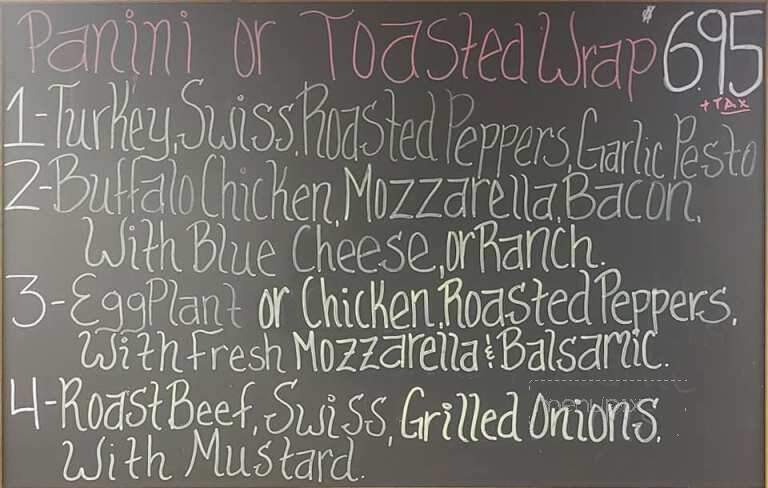 Panini or Toasted Wrap $6.95
+ TAX
1-Turkey, Swiss, Roasted Peppers, Garlic Pesto
2-Buffalo Chicken, Mozzarella, Bacon,
With Blue Cheese, or Ranch.
3-EggPlant or Chicken, Roasted Peppers,
With Fresh Mozzarella & Balsamic.
4-Roast Beef, Swiss, Grilled Onions,
With Mustard.
menupix